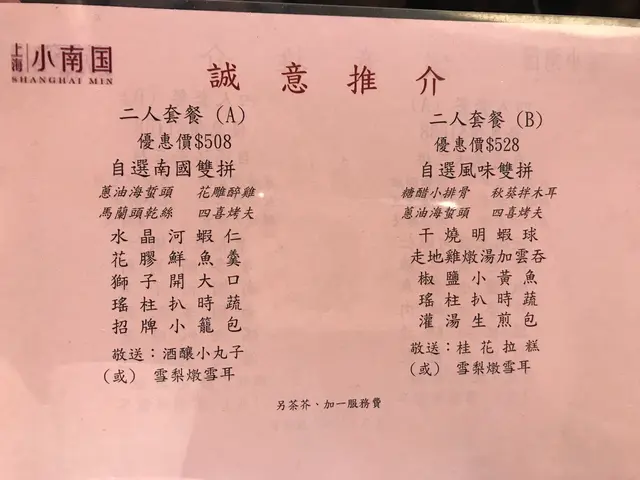 上海 小南国
SHANGHAI MIN
誠意推介
二人套餐 (A)
優惠價$508
自選南國雙拼
蔥油海蜇頭 花雕醉雞
馬蘭頭乾絲 四喜烤夫
水晶河蝦仁
花膠鮮魚羹
獅子開大口
瑤柱扒時蔬
招牌小籠包
敬送：酒釀小丸子
(或) 雪梨燉雪耳
二人套餐 (B)
優惠價$528
自選風味雙拼
糖醋小排骨 秋葵拌木耳
蔥油海蜇頭 四喜烤夫
干燒明蝦球
走地雞燉湯加雲吞
椒鹽小黃魚
瑤柱扒時蔬
灌湯生煎包
敬送：桂花拉糕
(或) 雪梨燉雪耳
另茶芥、加一服務費